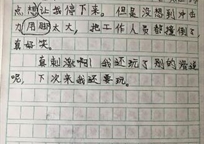 点想让船停下来。但是没想到冲击
力用脚太大,把工作人员都撞倒了
真好笑。
真刺激啊!我还玩了别的滑道
呢,下次来我还要玩。